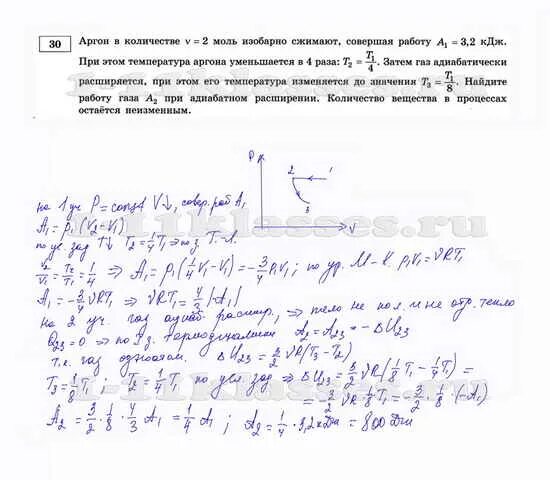 30 Аргон в количестве ν = 2 моль изобарно сжимают, совершая работу A₁ = 3,2 кДж.
При этом температура аргона уменьшается в 4 раза: T₂ = T₁/4. Затем газ адиабатически
расширяется, при этом его температура изменяется до значения T₃ = T₁/8. Найдите
работу газа A₂ при адиабатном расширении. Количество вещества в процессах
остаётся неизменным.
P
2 1
3
V
на 1 уч P = const V↓, совер. раб A₁
A₁ = p₁(V₂-V₁)
по ус. зад T↓ T₂ = 1/4 T₁ ⇒ по з. Г.-Л.
V₂/V₁ = T₂/T₁ = 1/4 ⇒ A₁ = p₁(1/4 V₁ - V₁) = -3/4 p₁V₁; по ур. М-К. p₁V₁ = νRT₁
A₁ = -3/4 νRT₁ ⇒ νRT₁ = 4/3 |A₁|
на 2 уч. газ адиаб. расшир, ⇒ тело не пол. и не отд. тепло
Q₂₃ = 0 ⇒ по I з. термодинамики A₂ = A₂₃ = -ΔU₂₃
т.к. газ одноатом. ΔU₂₃ = 3/2 νR(T₃-T₂)
T₃ = 1/8 T₁; T₂ = 1/4 T₁ по усл. зад ⇒ ΔU₂₃ = 3/2 νR(1/8 T₁ - 1/4 T₁) =
= -3/2 νR·1/8 T₁ = -3/2 · 1/8 · (-A₁)
A₂ = 3/2 · 1/8 · 4/3 A₁ = 1/4 A₁; A₂ = 1/4 · 3,2 кДж = 800 Дж
1-11klasses.ru